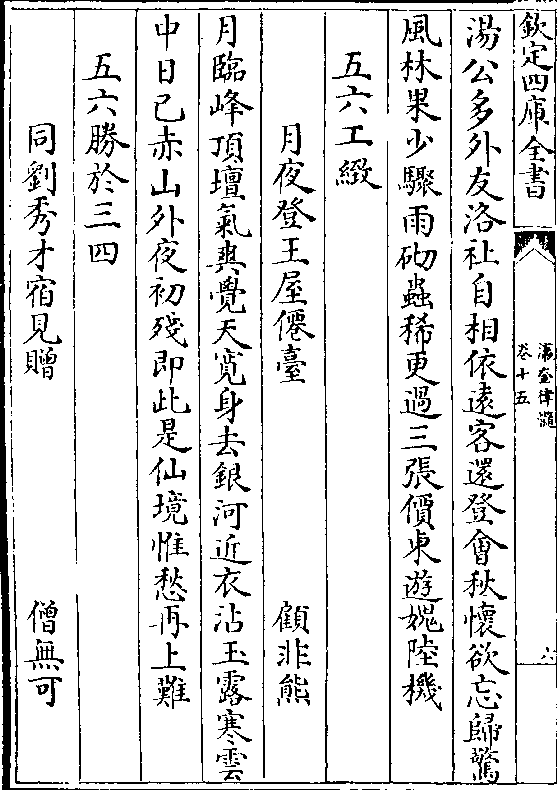 欽定四庫全書
瀛奎律髓
卷十五
六
湯公多外友洛社自相依遠客還登會秋懷欲忘歸驚
風林果少驟雨砌蟲稀更過三張價東遊媿陸機
五六工緻
月夜登王屋僊臺 顧非熊
月臨峰頂壇氣爽覺天寛身去銀河近衣沾玉露寒雲
中日已赤山外夜初殘即此是仙境惟愁再上難
五六勝於三四
同劉秀才宿見贈 僧無可